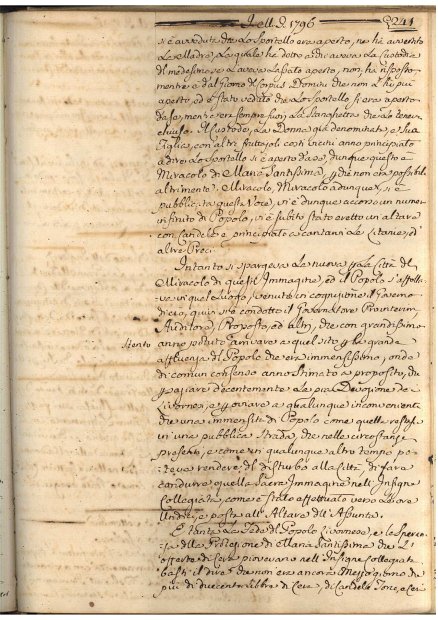 Dell' 1796 241
si è avveduta che Lo Sportello era aperto, ne ha avvertito
La Madre, La quale ha detto a chi aveva La Custodia
di medesimo se L'aveva Lasciato aperto, non ha risposto,
mentre dal giorno di Corpus Domini che non L'ha più
aperto, ed è stato veduto che Lo Sportello si era aperto
da se, mentre era sempre fuori La che Lo teneva
chiuso. Il Custode, La Donna già denominata, e Sua
Figlia, con altri fruttajoli costì vicini anno principiato
a dire: Lo Sportello si è aperto da se, dunque questo è
Miracolo di Maria Santissima, che non era possibile
altrimenti. Miracolo, Miracolo adunque, si è
pubblicata questa Voce, vi è dunque accorso un numero
infinito di Popolo, vi è subito stato eretto un altare
con Candele, e principiato a cantarvi Le Litanie, ed
altre Preci.
Intanto si spargeva La nuova per La Città del
Miracolo di questa Immagine, ed il Popolo s'affollava
in quel Luogo, venuto in cognizione il Governo
di ciò, quivi si è condotto il Governatore
Auditore, Proposto, ed altri, che con grandissimo
stento anno potuto arrivare a quel sito per la grande
affluenza di Popolo che era immensissimo, onde
di comun consenso anno stimato a proposito, che
per appagare decentemente La pia Devozione de
Livornesi, e per ovviare a qualunque inconveniente
che una immensità di Popolo come quella restasse
in una pubblica Strada, che nelle circostanze
presenti, e come in qualunque altro tempo po=
teva rendere di disturbo alla Città, di fare
condurre quella Sacra Immagine nell' Insigne
Collegiata, come è stato effettuato verso Le ore
Undici, e posta all' Altare dell' Assunta.
È tanta La Fede del Popolo Livornese, e La Speran=
za della Protezione di Maria Santissima che L'
offerte di Cera piovevano nell' Insigne Collegiata
basti il dire che non era ancora Mezzo giorno che
più di duecento Libbre di Cera, di Candele, Torce, e Ceri